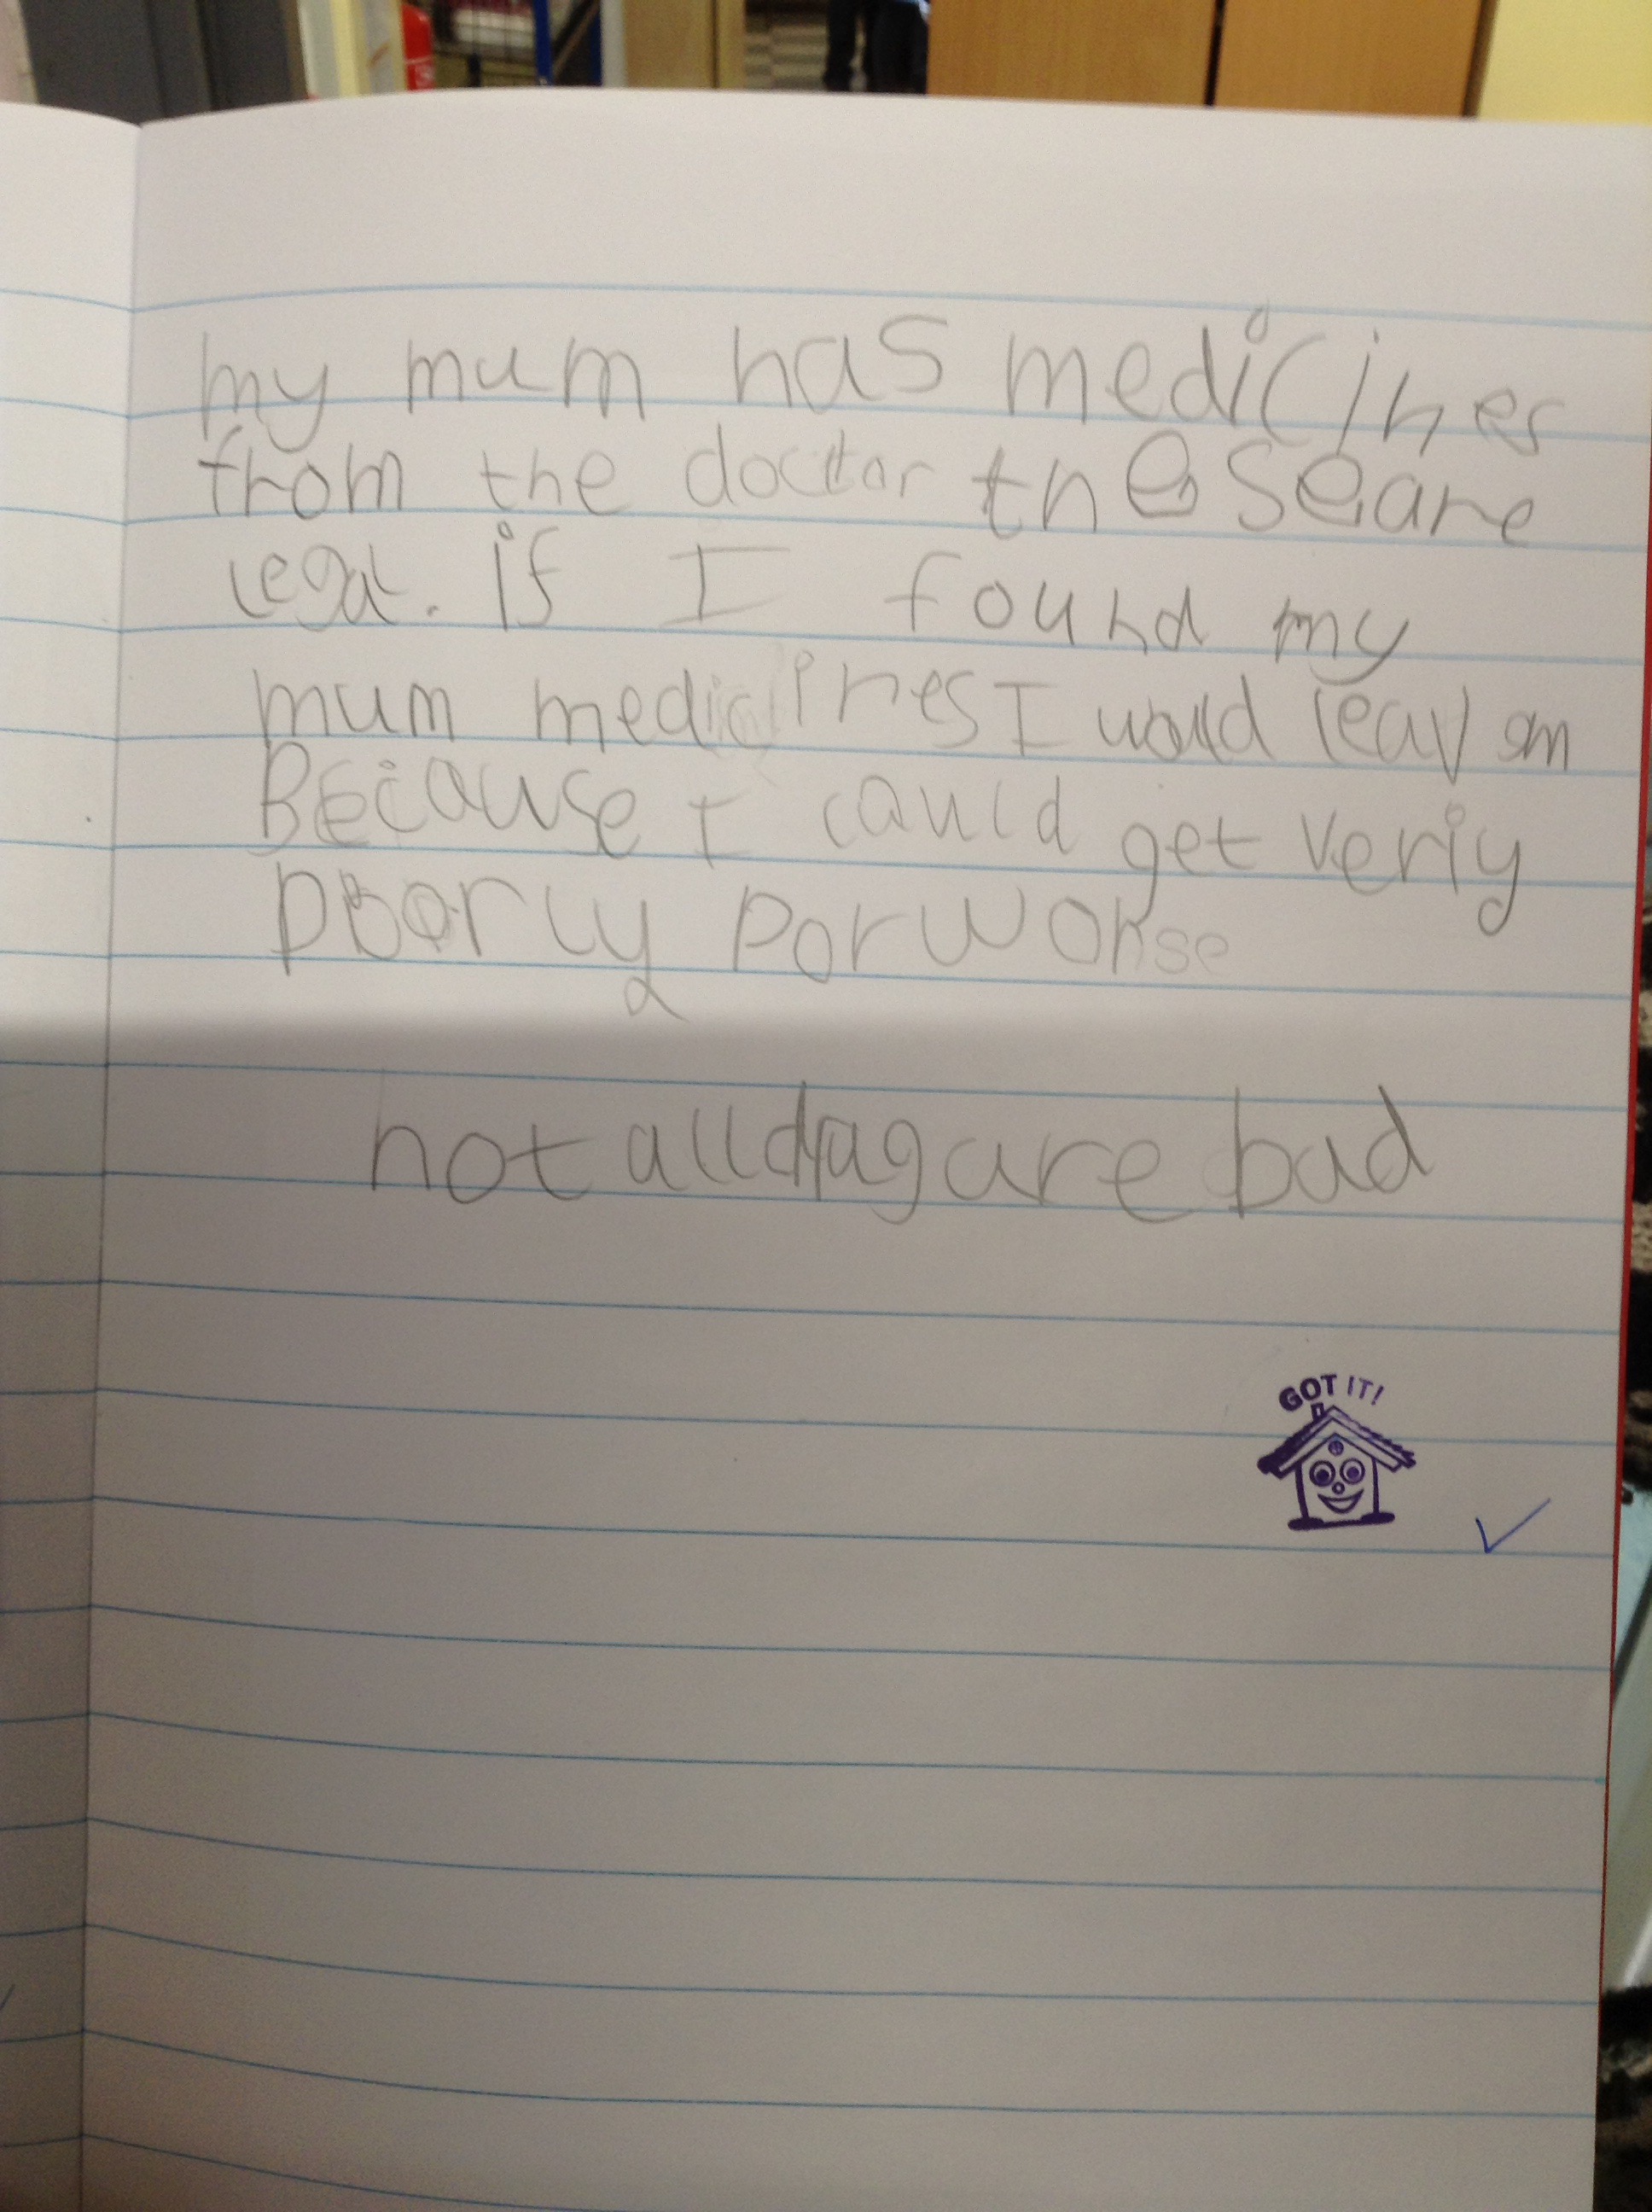 my mum has medicines
from the doctor these are
legal. if I found my
mum medicines I would leav am
Because I could get veriy
poorly por worse
not all drag are bad
GOT IT!